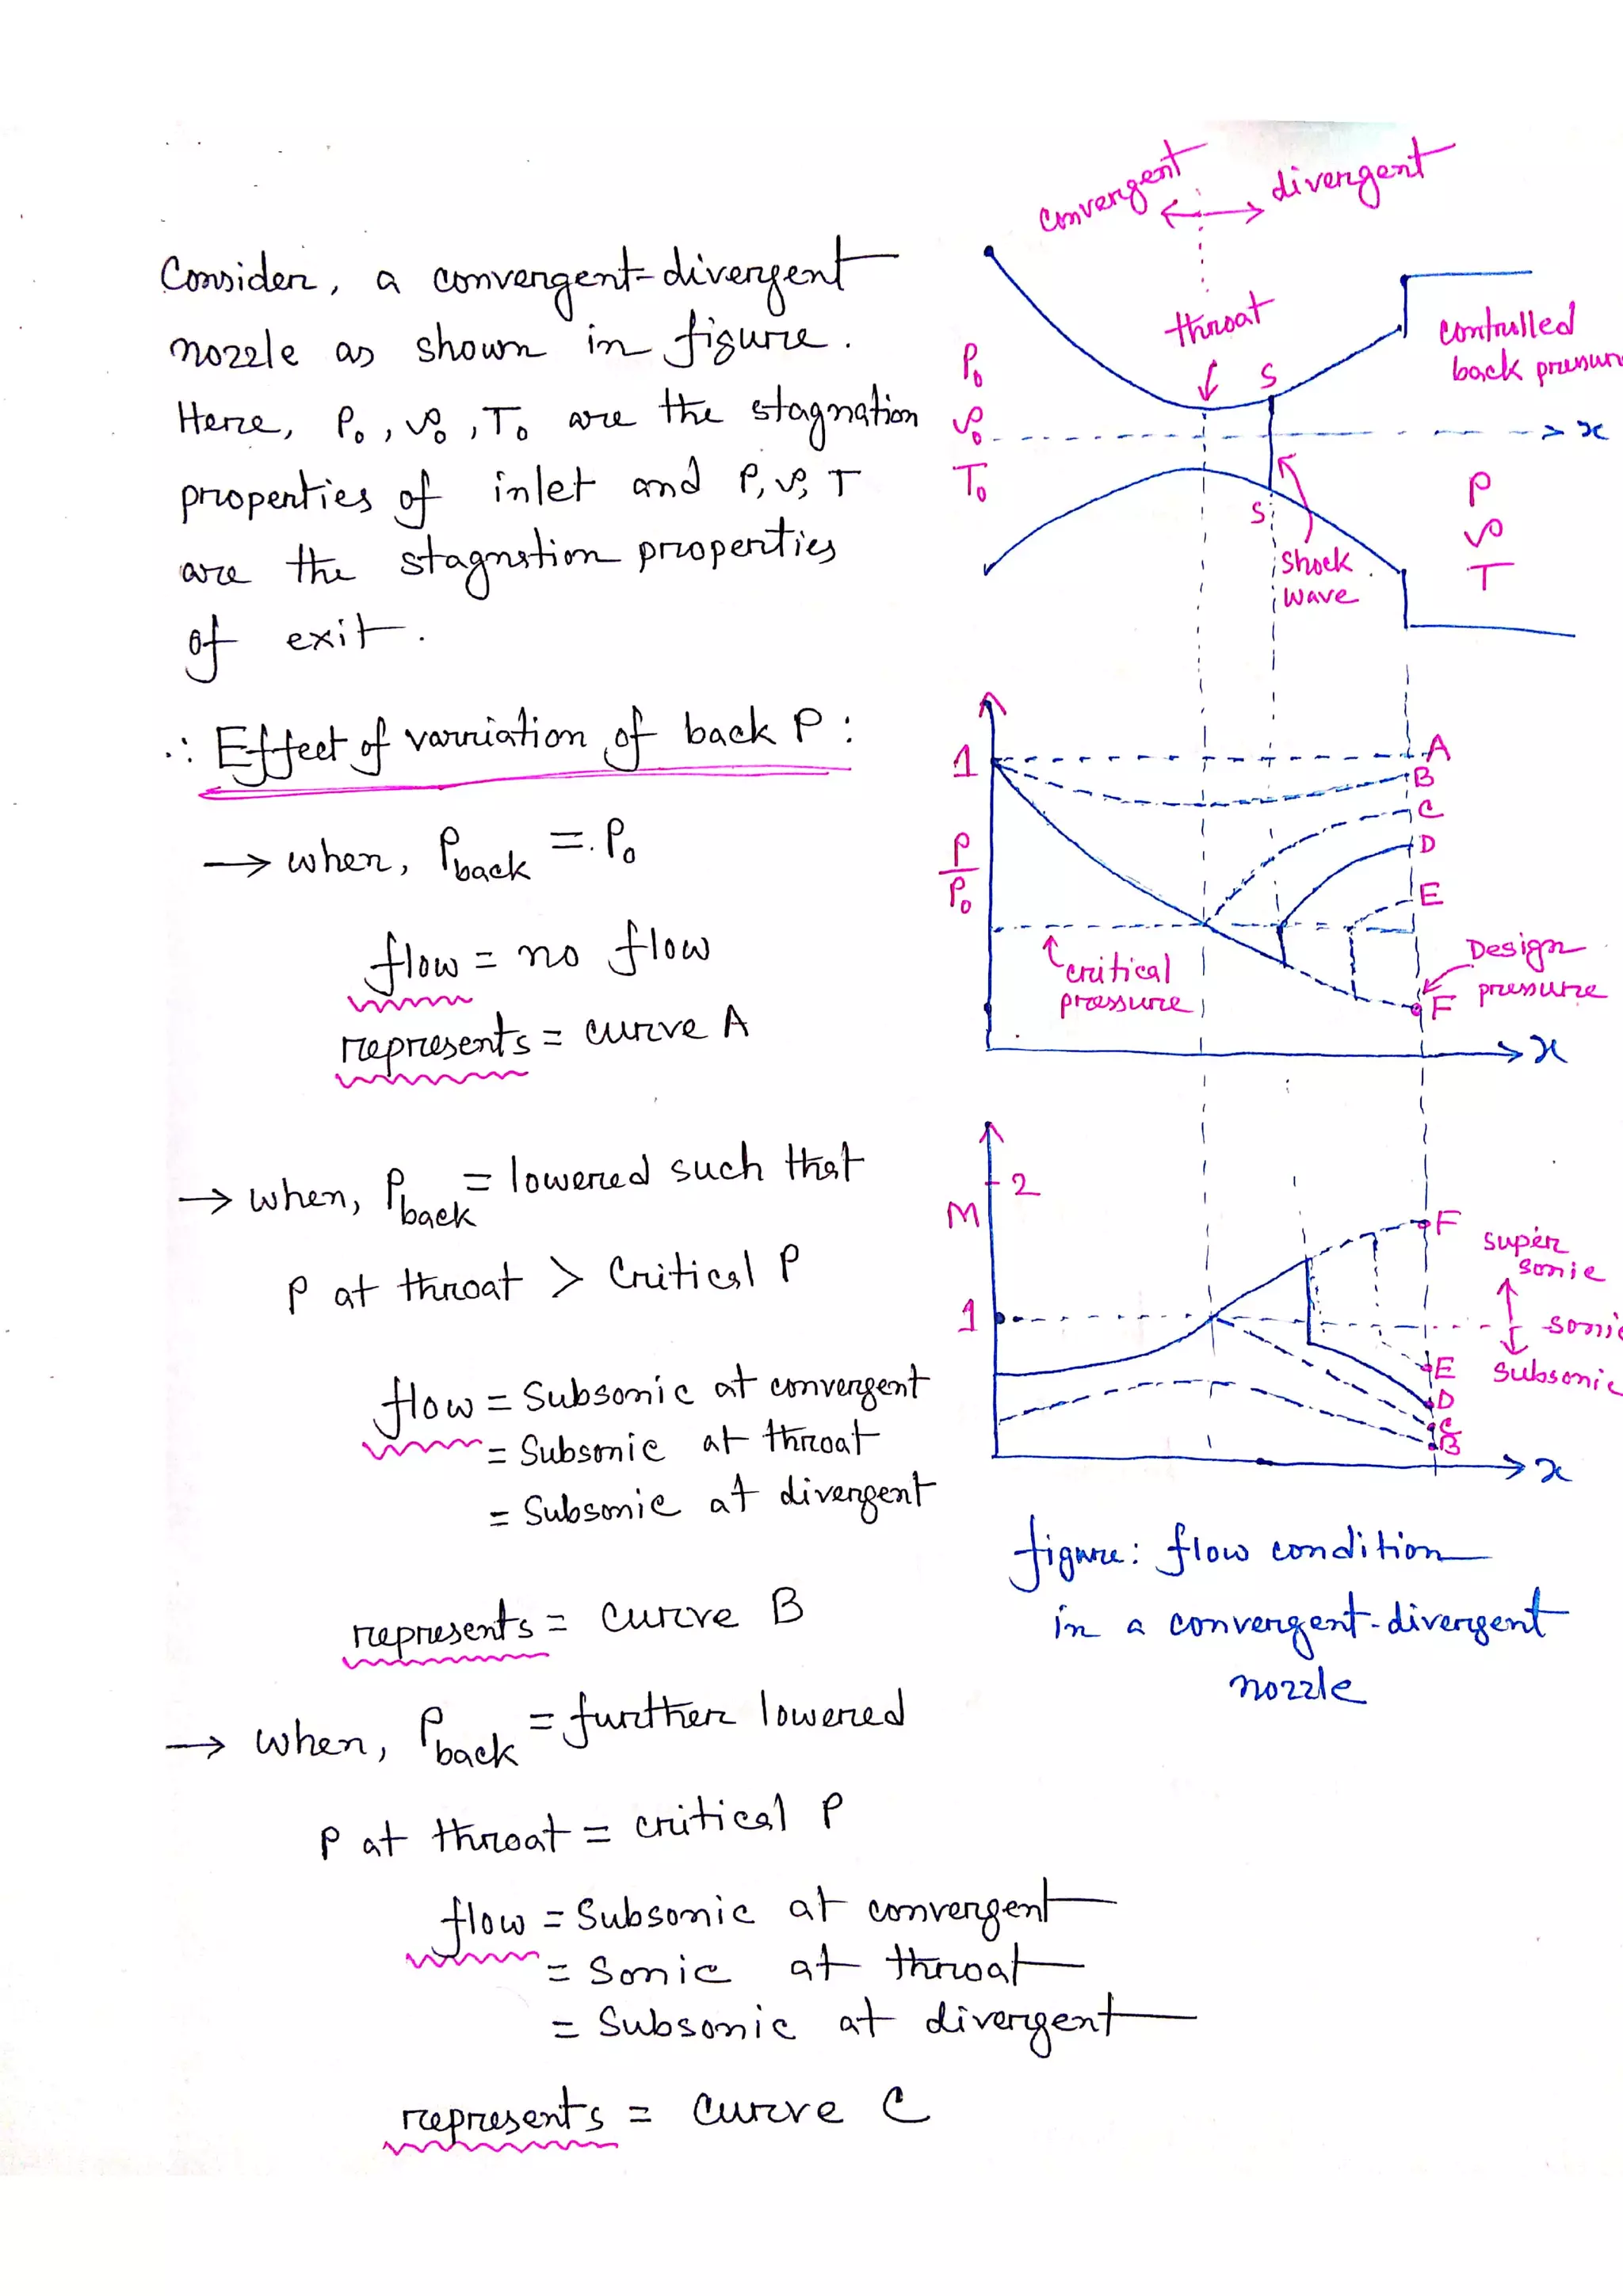 Consider, a convergent-divergent
nozzle as shown in figure.
Here, P₀, ρ₀, T₀ are the stagnation
properties of inlet and P, ρ, T
are the stagnation properties
of exit.
∴ Effect of variation of back P :
→ when, Pback = P₀
flow = no flow
represents = curve A
→ when, Pback = lowered such that
P at throat > Critical P
flow = Subsonic at convergent
= Subsonic at throat
= Subsonic at divergent
represents = curve B
→ when, Pback = further lowered
P at throat = critical P
flow = Subsonic at convergent
= Sonic at throat
= Subsonic at divergent
represents = curve C
convergent ← → divergent
throat
S
controlled
back pressure
P₀
ρ₀
T₀
x
S
shock
wave
P
ρ
T
1
A
B
C
D
E
P/P₀
critical
pressure
Design
pressure
F
x
2
M
F
super
sonic
1
sonic
subsonic
E
D
C
B
x
figure: flow condition
in a convergent-divergent
nozzle